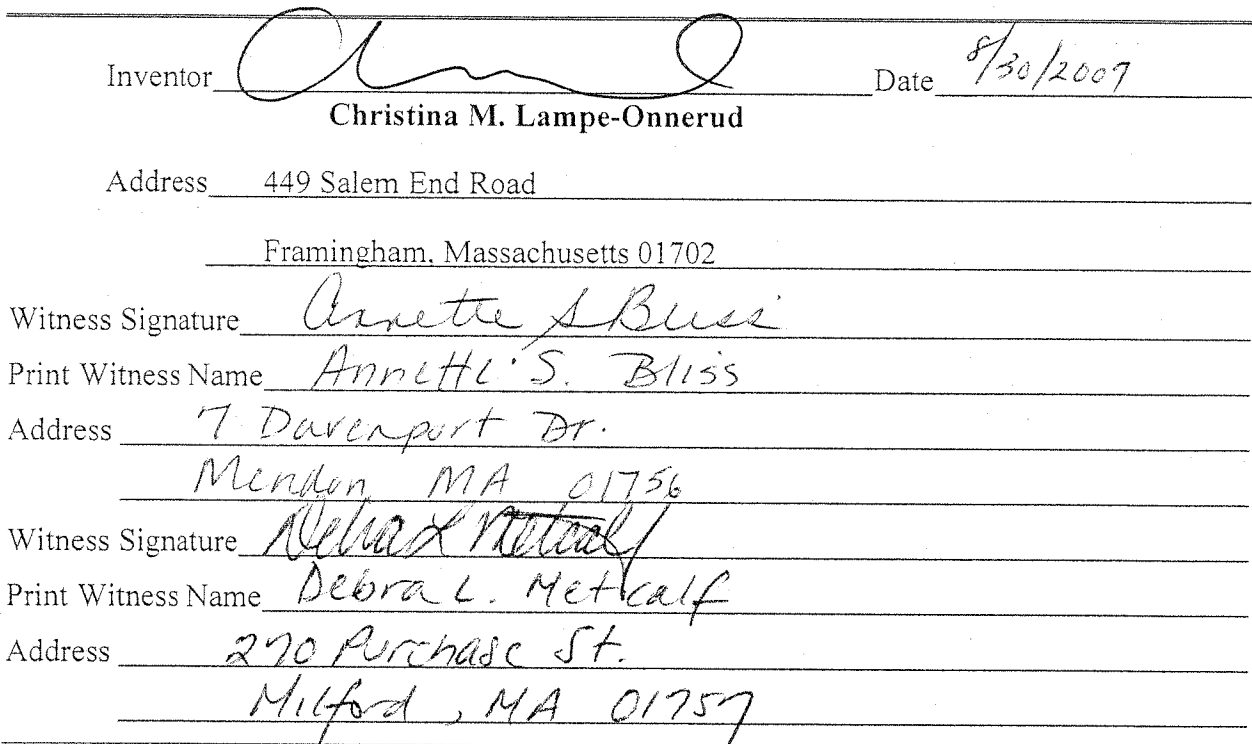 Inventor Date 8/30/2007
Christina M. Lampe-Onnerud
Address 449 Salem End Road
Framingham, Massachusetts 01702
Witness Signature Annette S Bliss
Print Witness Name Annette S. Bliss
Address 7 Davenport Dr.
Mendon MA 01756
Witness Signature Debra L Metcalf
Print Witness Name Debra L. Metcalf
Address 270 Purchase St.
Milford, MA 01757